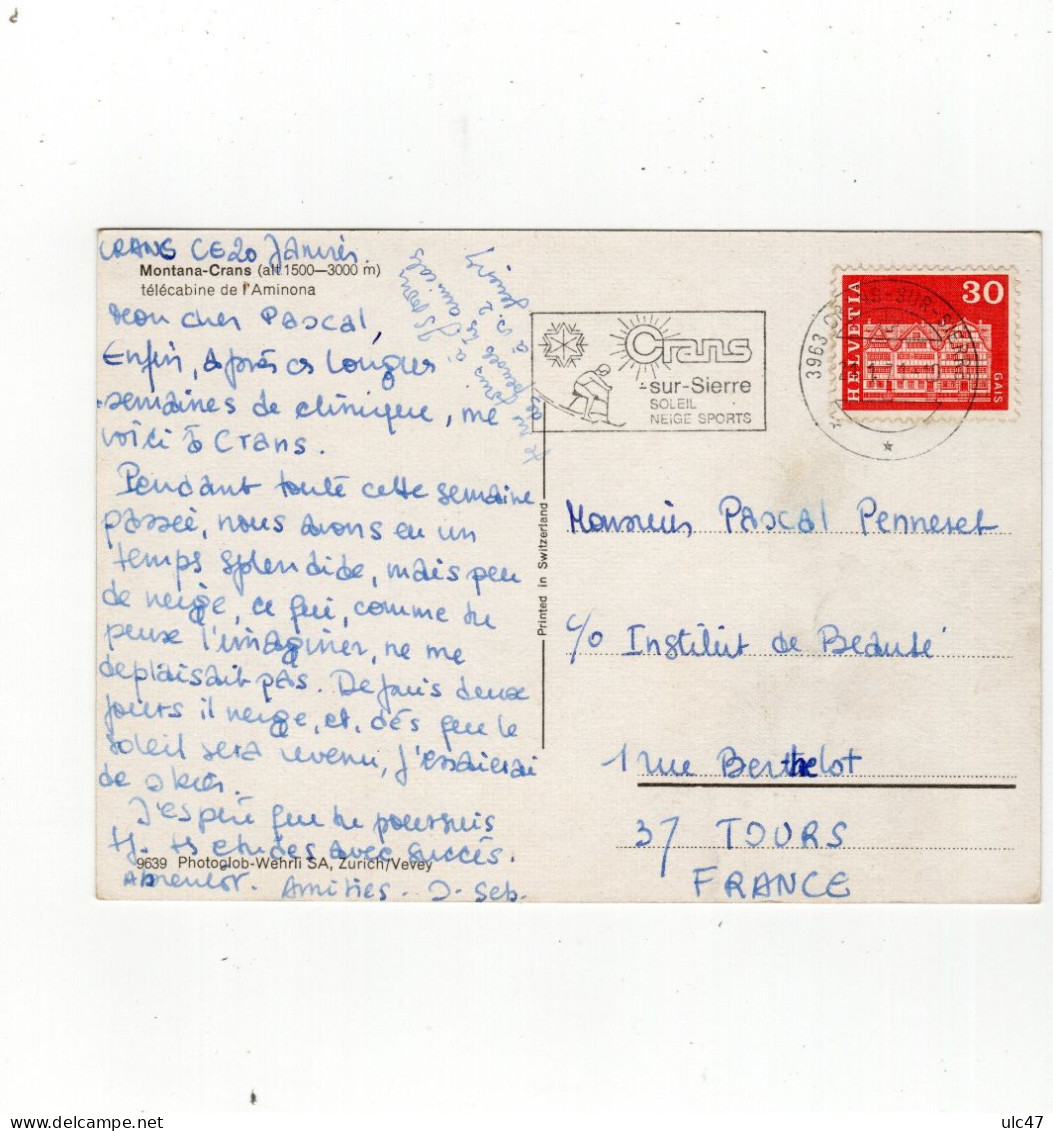 CRANS CE 20 Janvier.
Montana-Crans (alt. 1500—3000 m)
télécabine de l'Aminona
Mon cher Pascal,
Enfin, après ces longues
semaines de clinique, me
voici à Crans.
Pendant toute cette semaine
passée, nous avons eu un
temps splendide, mais peu
de neige, ce qui, comme tu
peux l'imaginer, ne me
deplaisait pas. Depuis deux
jours il neige, et, dés que le
soleil sera revenu, j'essaierai
de skier.
J'espère que tu poursuis
tj. ts etudes avec succès.
9639 Photoglob-Wehrli SA, Zürich/Vevey
Abientôt. Amitiés. J. Seb.
Printed in Switzerland
Crans
-sur-Sierre
SOLEIL
NEIGE SPORTS
3963 CRANS-SUR-SIERRE
HELVETIA
30
GAIS
Monsieur Pascal Penneret
c/o Institut de Beauté
1 rue Berthelot
37 TOURS
FRANCE
ulc47